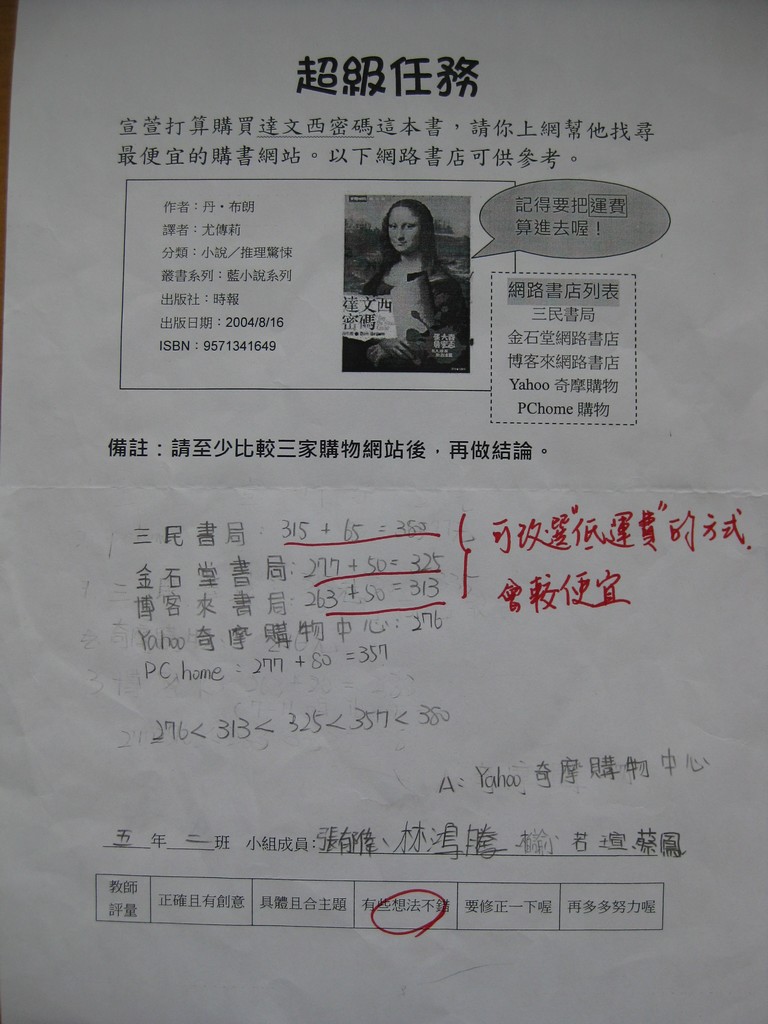 超級任務
宣萱打算購買達文西密碼這本書，請你上網幫他找尋
最便宜的購書網站。以下網路書店可供參考。
作者：丹‧布朗
譯者：尤傳莉
分類：小說／推理驚悚
叢書系列：藍小說系列
出版社：時報
出版日期：2004/8/16
ISBN：9571341649
達文西
密碼
記得要把運費
算進去喔！
網路書店列表
三民書局
金石堂網路書店
博客來網路書店
Yahoo 奇摩購物
PChome 購物
備註：請至少比較三家購物網站後，再做結論。
三民書局：315 + 65 = 380
金石堂書局：277 + 50 = 325
博客來書局：263 + 50 = 313
可改選"低運費"的方式.
會較便宜
Yahoo奇摩購物中心：276
PC home：277 + 80 = 357
276 < 313 < 325 < 357 < 380
A：Yahoo奇摩購物中心
五年二班 小組成員：張郁偉、林鴻騰 若瑄 蔡鳳
教師
評量
正確且有創意
具體且合主題
有些想法不錯
要修正一下喔
再多多努力喔